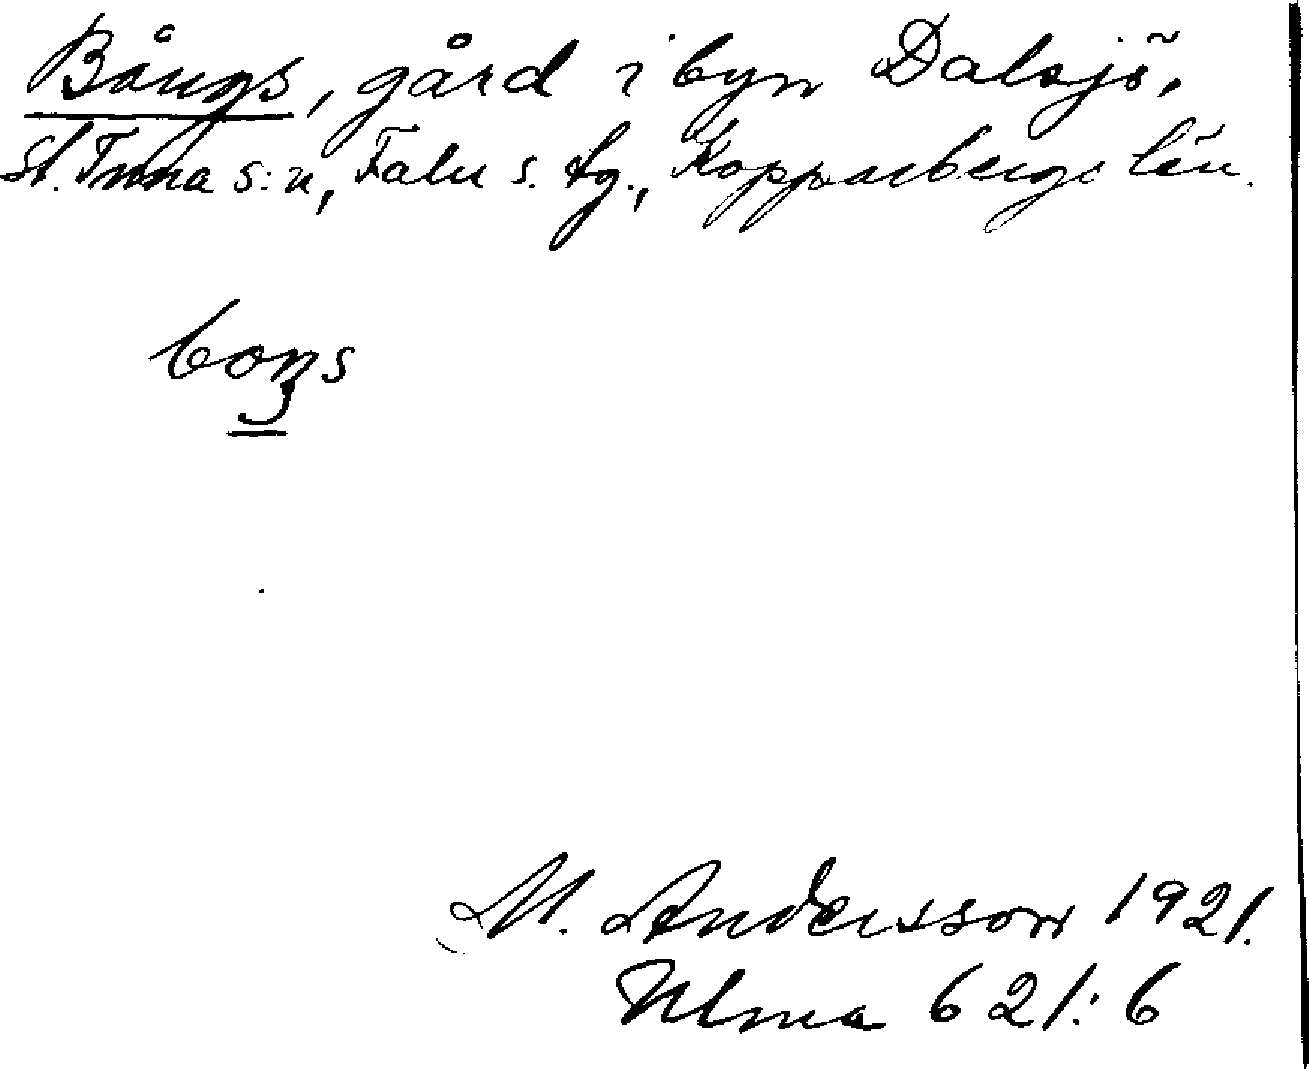 Bångs, gård i byn Dalsjö,
St. Tuna s:n, Falu s. tg., Kopparbergs län.
boŋs
M. Andersson 1921.
Ulma 621:6